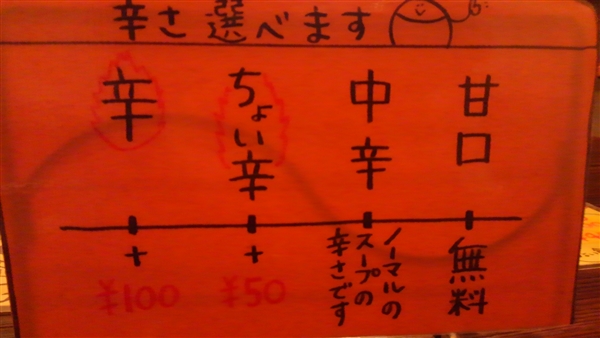 辛さ選べます
甘口
中辛
ちょい辛
辛
無料
ノーマルの
スープの
辛さです
+
¥50
+
¥100